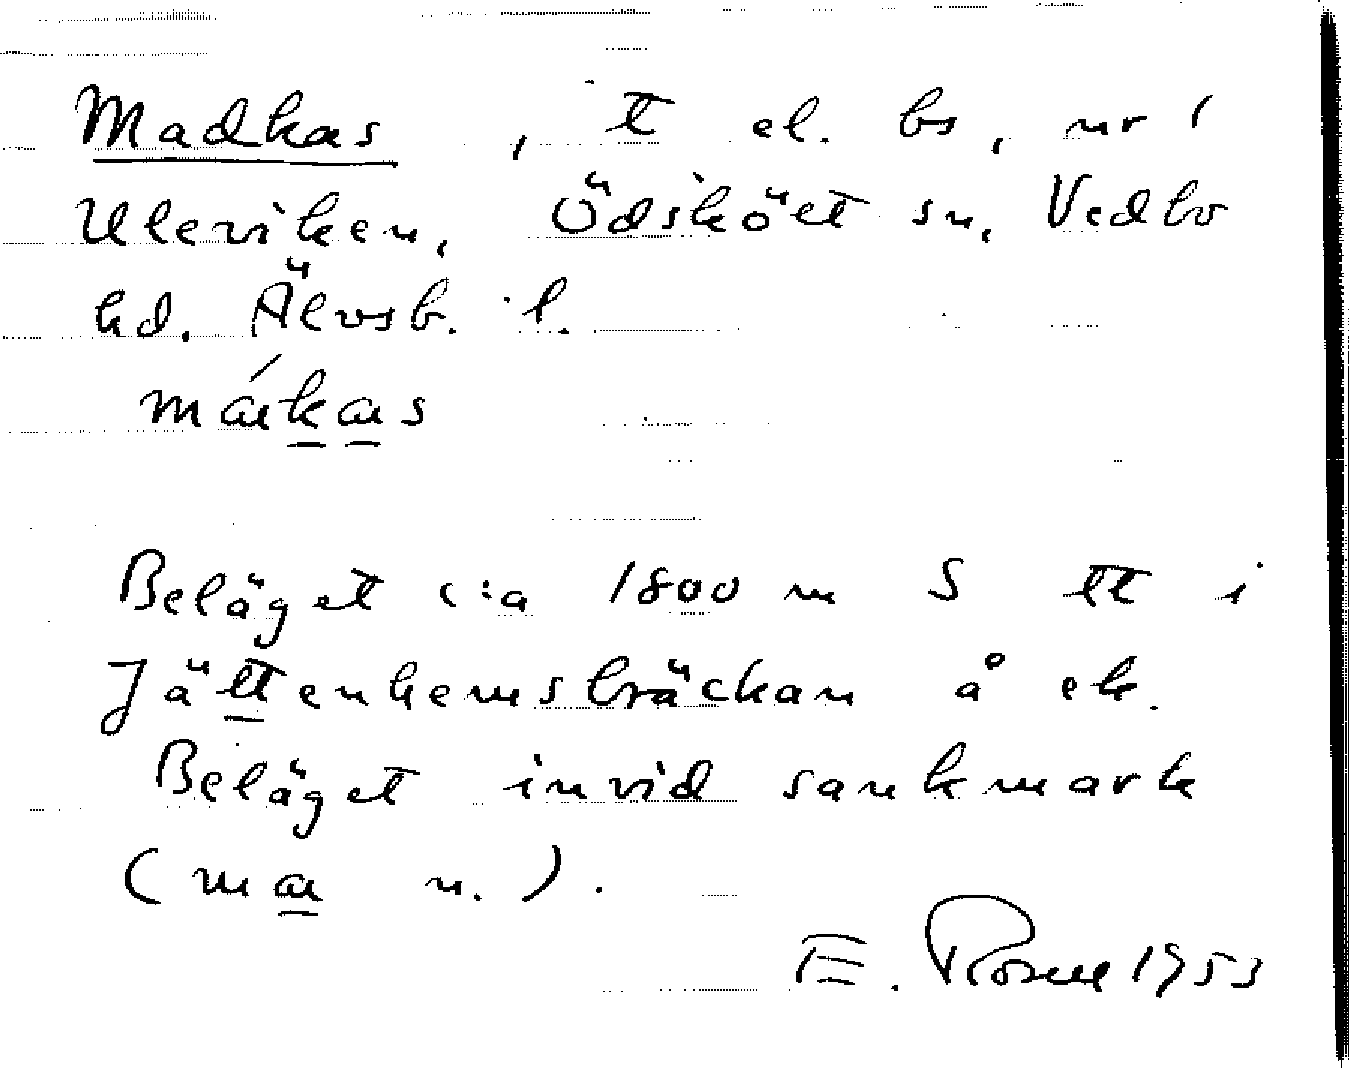 Madkas , t el. bs, nr 1
Ulerviken, Ödskölt sn, Vedbo
hd. Älvsb. l.
máʀkas
Beläget c:a 1800 m S tt i
Jättenhemsbräckan å ek.
Beläget invid sankmark
(ma n.).
E. Rosell 1953